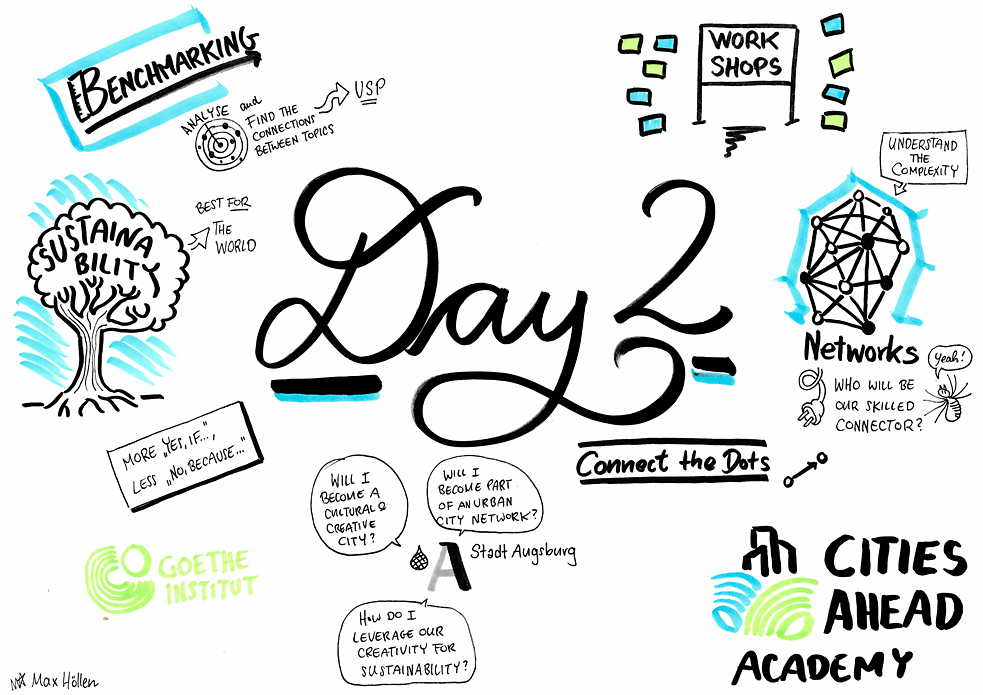 BENCHMARKING
ANALYSE and
FIND THE
CONNECTIONS
BETWEEN TOPICS
USP
WORK
SHOPS
UNDERSTAND
THE
COMPLEXITY
SUSTAINA
BILITY
BEST FOR
THE
WORLD
Day 2
Networks
Yeah!
WHO WILL BE
OUR SKILLED
CONNECTOR?
MORE „YES, IF...",
LESS „NO, BECAUSE..."
Connect the Dots
WILL I
BECOME A
CULTURAL &
CREATIVE
CITY?
WILL I
BECOME PART
OF AN URBAN
CITY NETWORK?
A Stadt Augsburg
HOW DO I
LEVERAGE OUR
CREATIVITY FOR
SUSTAINABILITY?
GOETHE
INSTITUT
CITIES
AHEAD
ACADEMY
Max Höllen